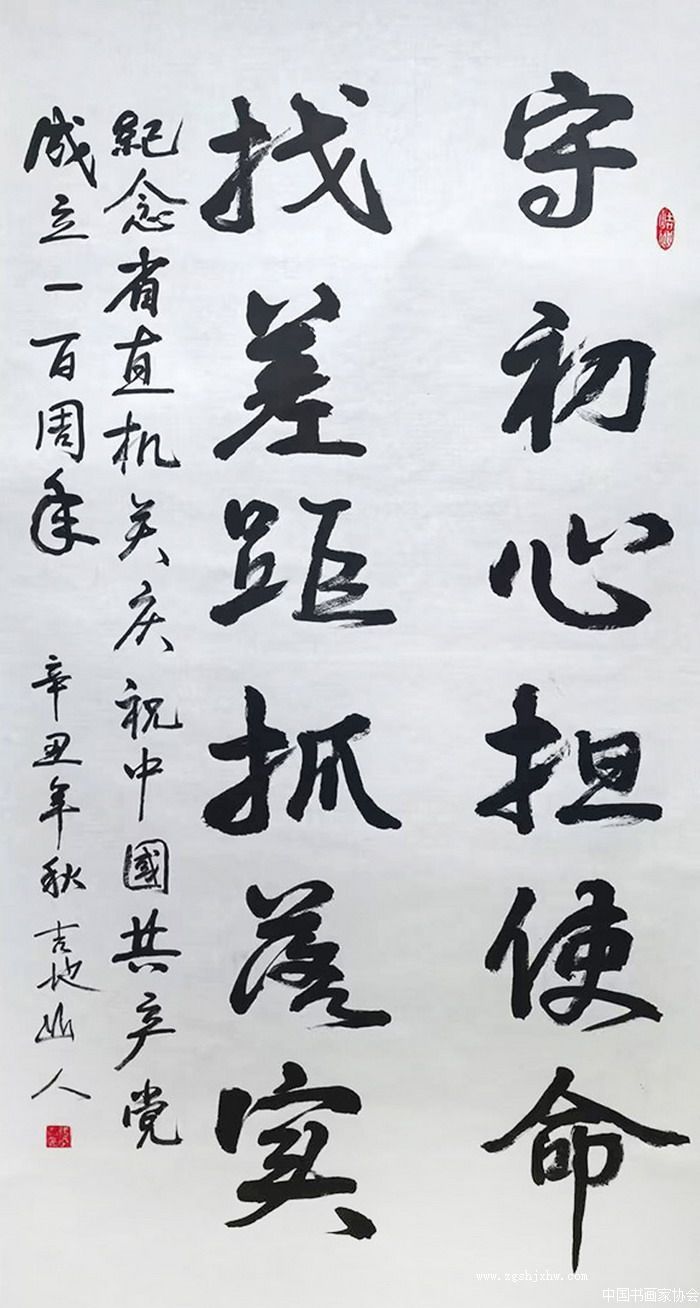 守初心担使命
找差距抓落实
纪念省直机关庆祝中國共产党
成立一百周年
辛丑年秋 吉地山人
www.zgshjxhw.com
中国书画家协会